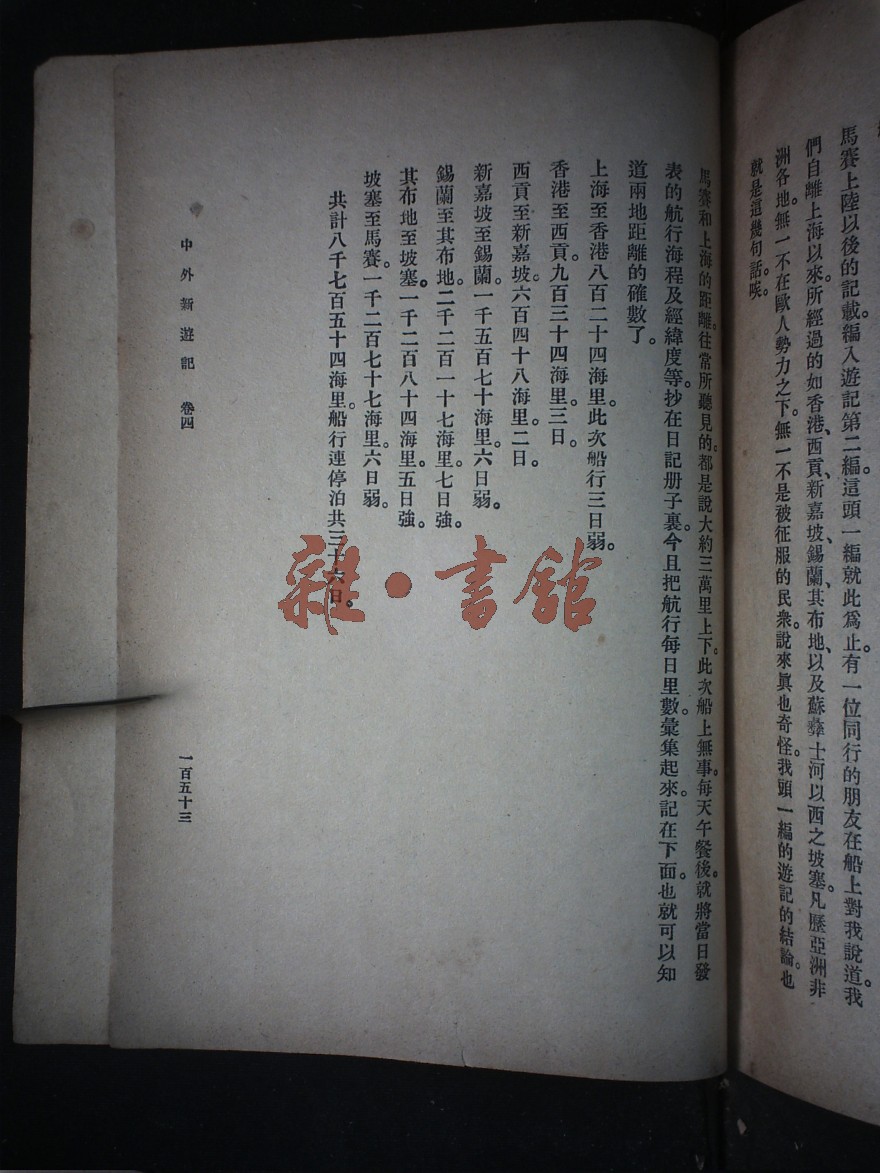 馬賽上陸以後的記載。編入遊記第二編。這頭一編就此爲止。有一位同行的朋友在船上對我說道。我
們自離上海以來。所經過的如香港、西貢、新嘉坡、錫蘭、其布地、以及蘇彝士河以西之坡塞。凡歷亞洲非
洲各地。無一不在歐人勢力之下。無一不是被征服的民衆。說來眞也奇怪。我頭一編的遊記的結論。也
就是這幾句話。唉。
馬賽和上海的距離。往常所聽見的。都是說大約三萬里上下。此次船上無事。每天午餐後。就將當日發
表的航行海程及經緯度等。抄在日記册子裏。今且把航行每日里數。彙集起來。記在下面。也就可以知
道兩地距離的確數了。
上海至香港八百二十四海里。此次船行三日弱。
香港至西貢。九百三十四海里。三日。
西貢至新嘉坡。六百四十八海里。二日。
新嘉坡至錫蘭。一千五百七十海里。六日弱。
錫蘭至其布地。二千二百一十七海里。七日強。
其布地至坡塞。一千二百八十四海里。五日強。
坡塞至馬賽。一千二百七十七海里。六日弱。
共計八千七百五十四海里。船行連停泊共三十六日。
中外新遊記 卷四
一百五十三
雜·書館